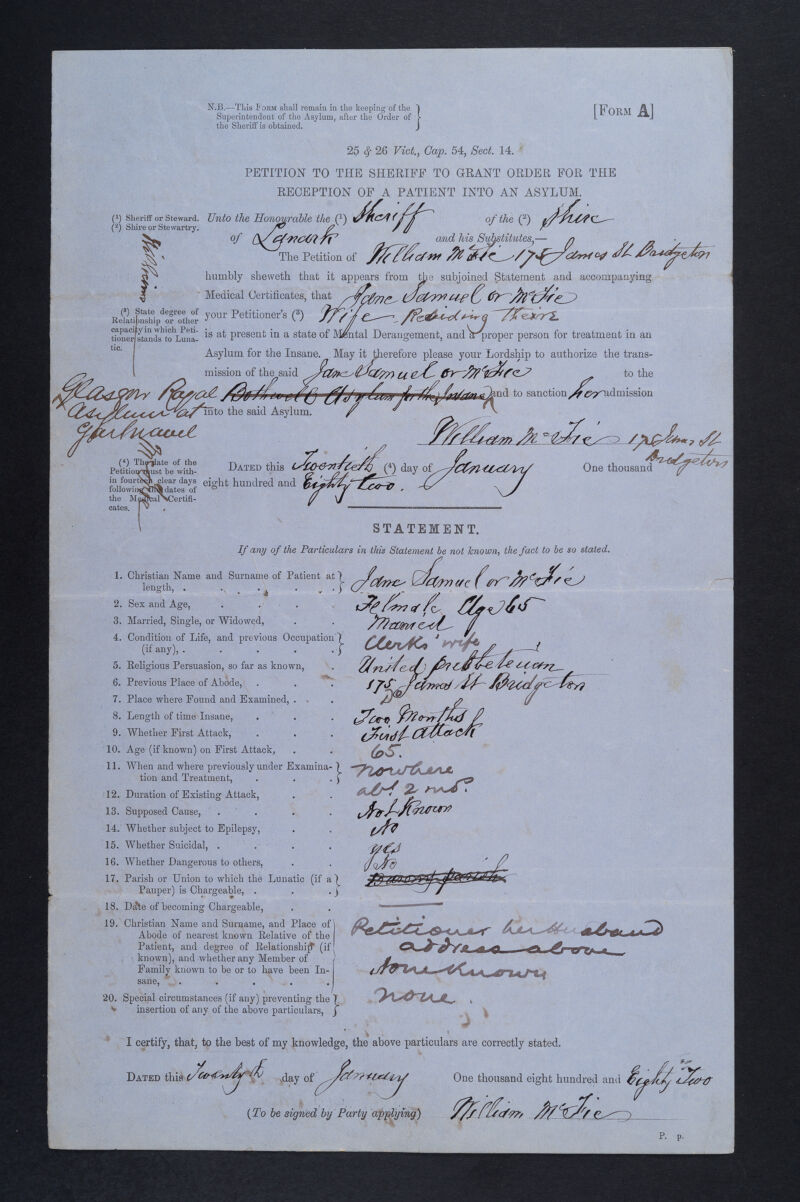 N.B.—This Form shall remain in the keeping of the
Superintendent of the Asylum, after the Order of
the Sheriff is obtained.
[Form A]
25 & 26 Vict., Cap. 54, Sect. 14.
PETITION TO THE SHERIFF TO GRANT ORDER FOR THE
RECEPTION OF A PATIENT INTO AN ASYLUM.
(1) Sheriff or Steward.
(2) Shire or Stewartry.
Unto the Honourable the (1) Sheriff of the (2) Shire
of Lanark and his Substitutes,—
The Petition of William McFie 175 James St Bridgeton
humbly sheweth that it appears from the subjoined Statement and accompanying
Medical Certificates, that Jane Samuel or McFie
(3) State degree of
Relationship or other
capacity in which Peti-
tioner stands to Luna-
tic.
your Petitioner's (3) Wife Residing there
is at present in a state of Mental Derangement, and a proper person for treatment in an
Asylum for the Insane. May it therefore please your Lordship to authorize the trans-
mission of the said Jane Samuel or McFie to the
Glasgow Royal
Asylum at
Gartnavel
Bothwell Asylum for the Insane and to sanction her admission
into the said Asylum.
William McFie 175 James St
Bridgeton
(4) The date of the
Petition must be with-
in fourteen clear days
following the dates of
the Medical Certifi-
cates.
Dated this Twentieth (4) day of January One thousand
eight hundred and Eighty two.
STATEMENT.
If any of the Particulars in this Statement be not known, the fact to be so stated.
1. Christian Name and Surname of Patient at
length, . . . . . Jane Samuel or McFie
2. Sex and Age, . . . . Felmale Age 65
3. Married, Single, or Widowed, . . Married
4. Condition of Life, and previous Occupation
(if any), . . . . . Clerks' wife
5. Religious Persuasion, so far as known, . United Presbeterian
6. Previous Place of Abode, . . . 175 James St Bridgeton
7. Place where Found and Examined, . . Do
8. Length of time Insane, . . . Two Months
9. Whether First Attack, . . . First Attack
10. Age (if known) on First Attack, . . 65.
11. When and where previously under Examina-
tion and Treatment, . . . nowhere
12. Duration of Existing Attack, . . abt. 2 mos.
13. Supposed Cause, . . . . Not Known
14. Whether subject to Epilepsy, . . No
15. Whether Suicidal, . . . . yes
16. Whether Dangerous to others, . . No
17. Parish or Union to which the Lunatic (if a
Pauper) is Chargeable, . . . Barony parish
18. Date of becoming Chargeable, . .
19. Christian Name and Surname, and Place of
Abode of nearest known Relative of the
Patient, and degree of Relationship (if
known), and whether any Member of
Family known to be or to have been In-
sane, . . . . . .
Petitioner her Husband
address above
None Known
20. Special circumstances (if any) preventing the
insertion of any of the above particulars, none.
I certify, that, to the best of my knowledge, the above particulars are correctly stated.
Dated this Twentyth day of January One thousand eight hundred and Eighty Two
(To be signed by Party applying) William McFie
P. p.